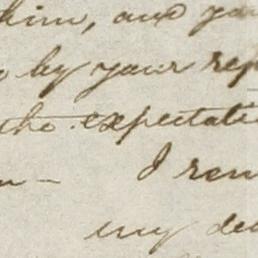 him, and you
by your rep
the expectati
I rem
my dea